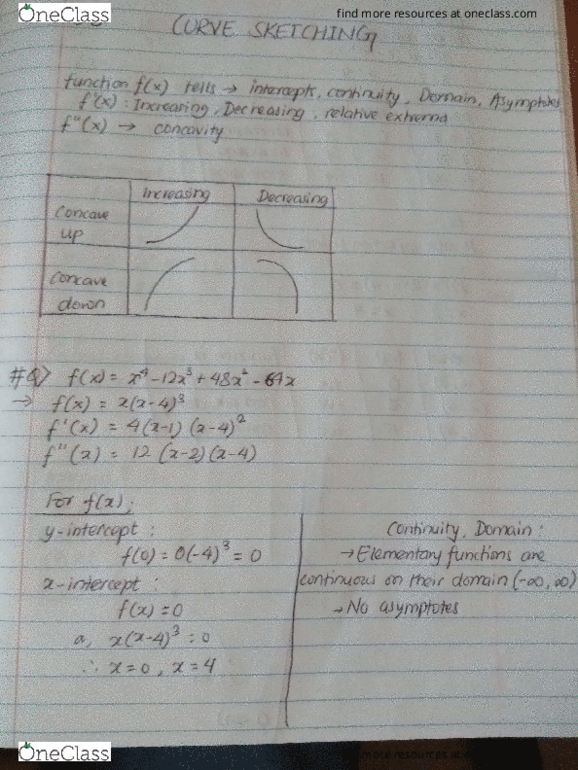 OneClass
find more resources at oneclass.com
CURVE SKETCHING
function f(x) tells → intercepts, continuity, Domain, Asymptotes
f'(x) : Increasing, Decreasing, relative extrema
f"(x) → concavity
Increasing Decreasing
Concave up
Concave down
#Q> f(x) = x⁴-12x³+48x²-64x
→ f(x) = x(x-4)³
f'(x) = 4(x-1)(x-4)²
f"(x) = 12(x-2)(x-4)
For f(x);
y-intercept :
f(0) = 0(-4)³ = 0
x-intercept :
f(x) = 0
a, x(x-4)³ = 0
∴ x=0, x=4
Continuity, Domain :
→ Elementary functions are
continuous on their domain (-∞, ∞)
→ No asymptotes
OneClass
more resources at